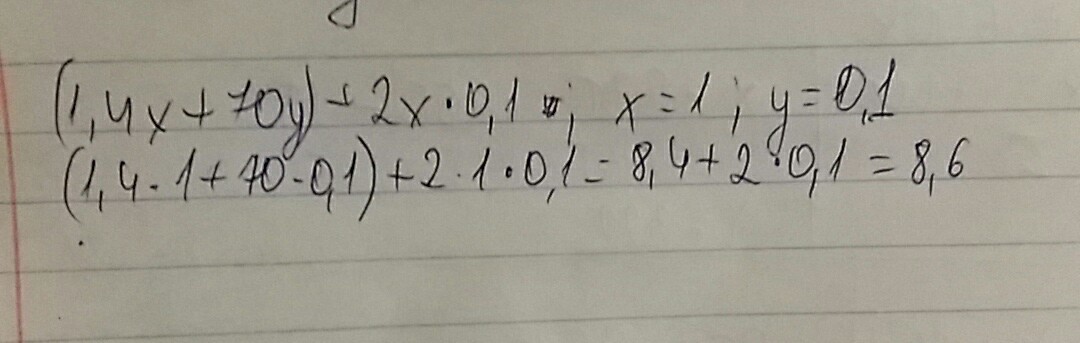 (1,4x+70y)+2x·0,1 ; x=1; y=0,1
(1,4·1+70·0,1)+2·1·0,1=8,4+2·0,1=8,6